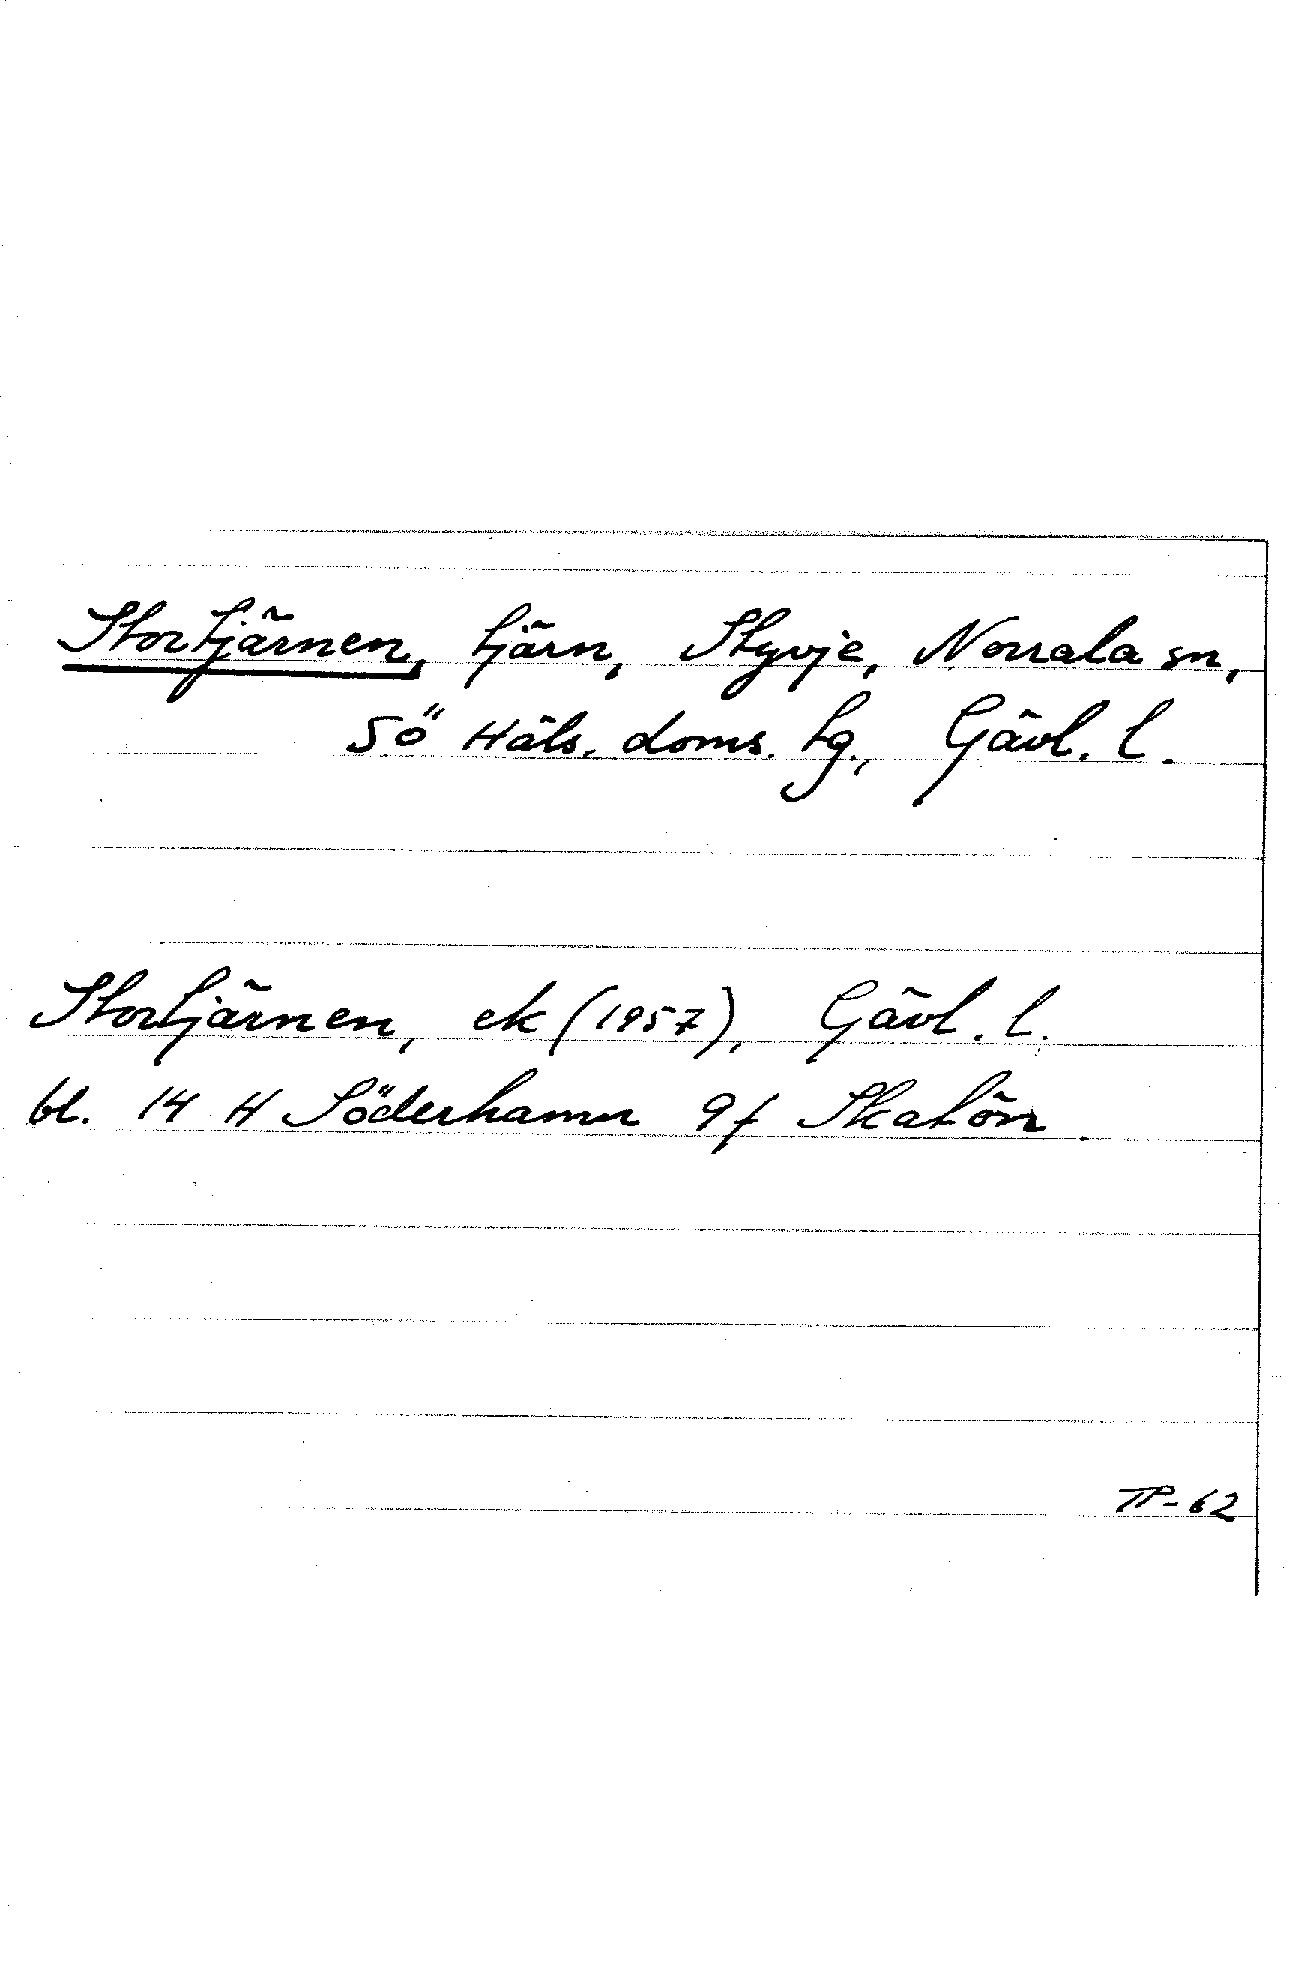 Stortjärnen, tjärn, Styvje, Norrala sn,
Sö Häls. doms. tg., Gävl. l.
Stortjärnen, ek (1957), Gävl. l.
bl. 14 H Söderhamn 9f Skatön
TP-62